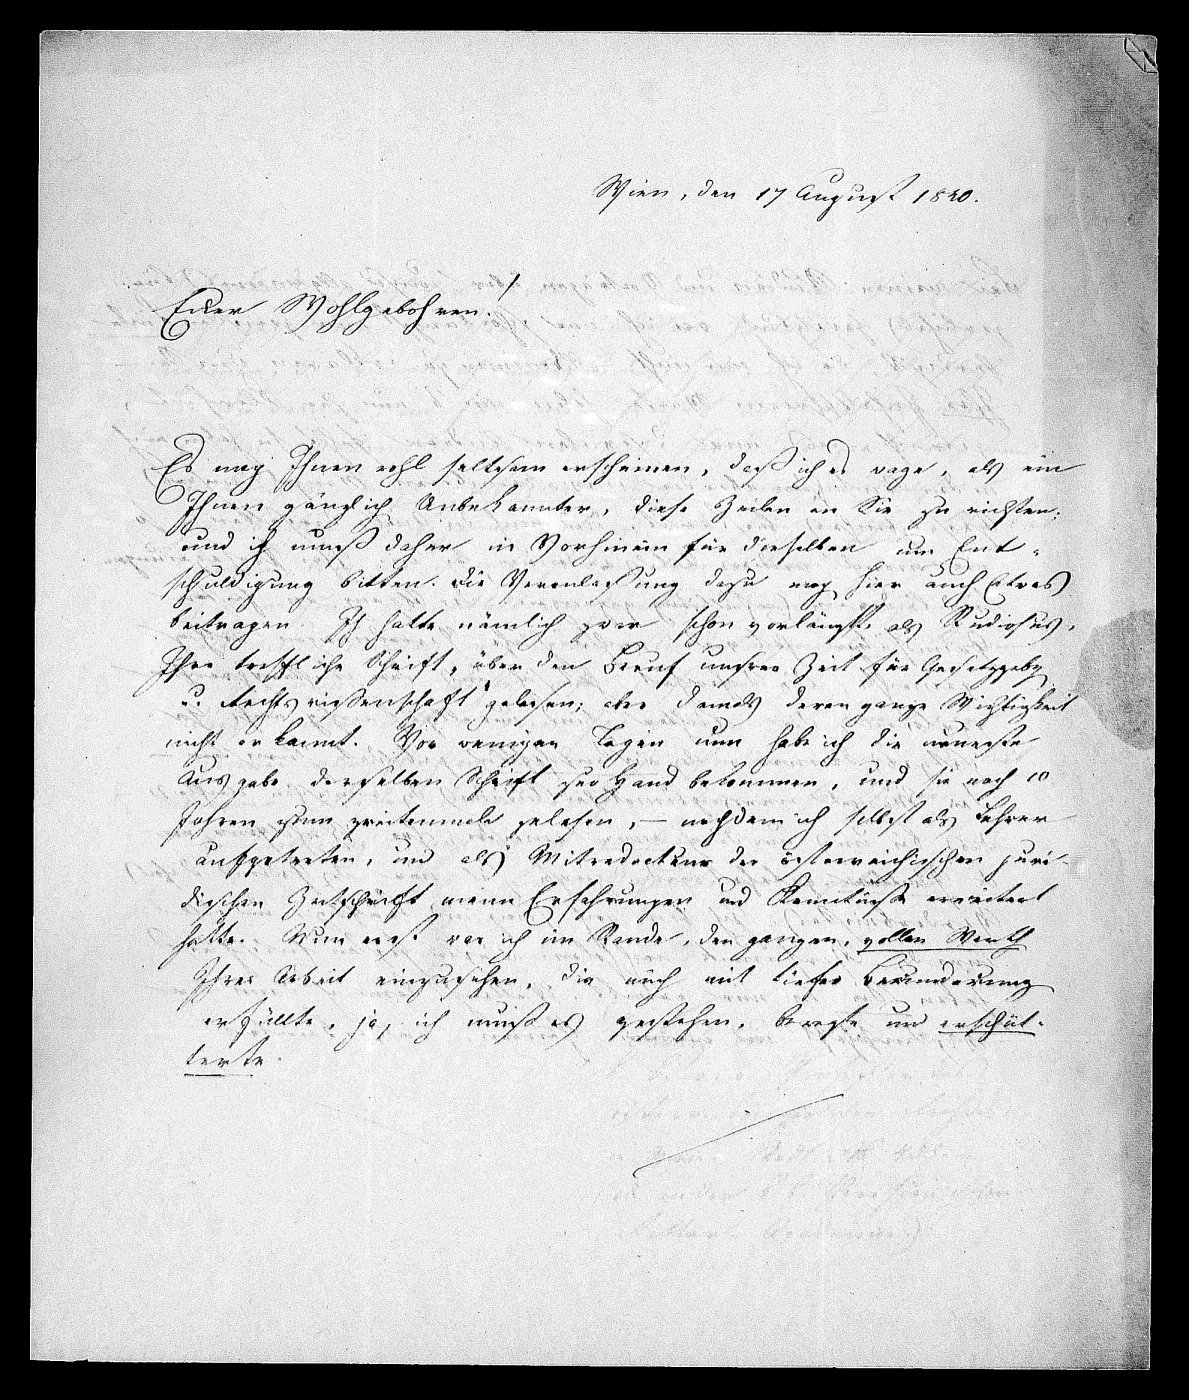 Wien, den 17 August 1840.
Euer Wohlgebohren!
Es mag Ihnen wohl seltsam erscheinen, daß ich es wage, als ein
Ihnen gänzlich Unbekannter, diese Zeilen an Sie zu richten;
und ich muß daher im Vorhinein für dieselben um Ent-
schuldigung bitten. Die Veranlassung dazu mag hier auch Etwas
beitragen Ich hatte nämlich zwar schon vorlängst, als Studiosus,
Ihre treffliche Schrift, „über den Beruf unsrer Zeit für Gesetzgebg
u. Rechtswissenschaft“ gelesen; aber damals deren ganze Wichtigkeit
nicht erkannt. Vor wenigen Tagen nun habe ich die neueste
Ausgabe derselben Schrift zur Hand bekommen, und sie nach 10
Jahren zum zweitenmale gelesen, – nachdem ich selbst als Lehrer
aufgetreten, und als Mitredacteur der österreichischen juri-
dischen Zeitschrift meine Erfahrungen und Kenntnisse erweitert
hatte. Nun erst war ich im Stande, den ganzen, vollen Werth
Ihrer Arbeit einzusehen, die mich mit tiefer Bewunderung
erfüllte, ja, ich muß es gestehen, bewegte und erschüt-
terte.